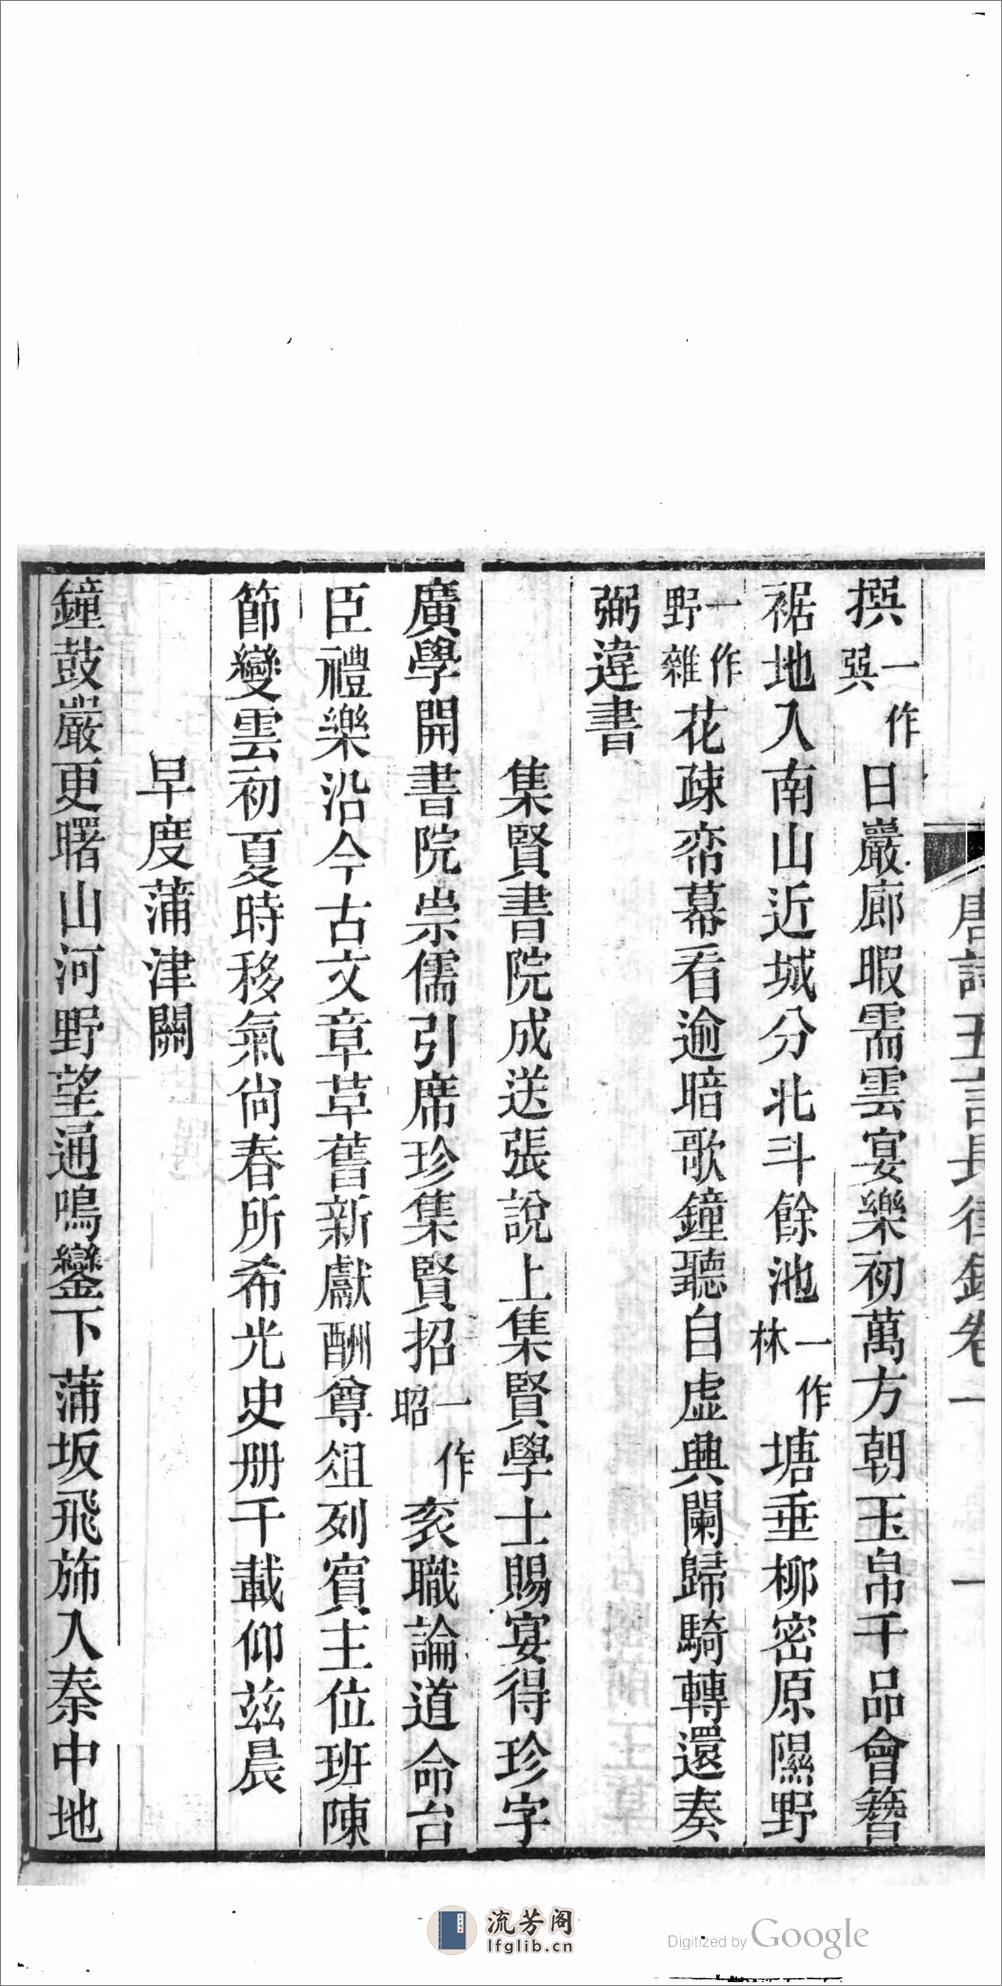 唐詩五言長律錄卷一 一
撰一作巽日巖廊暇需雲宴樂初萬方朝玉帛千品會簪
裾地入南山近城分北斗餘池一作林塘垂柳密原隰野
一作野雜花疎帟幕看逾暗歌鐘聽自虛興闌歸騎轉還奏
弼違書
集賢書院成送張說上集賢學士賜宴得珍字
廣學開書院崇儒引席珍集賢招一作昭衮職論道命台
臣禮樂沿今古文章草舊新獻酬尊俎列賓主位班陳
節變雲初夏時移氣尙春所希光史册千載仰兹晨
早度蒲津關
鐘鼓嚴更曙山河野望通鳴鑾下蒲坂飛斾入秦中地
流芳阁
lfglib.cn
Digitized by Google